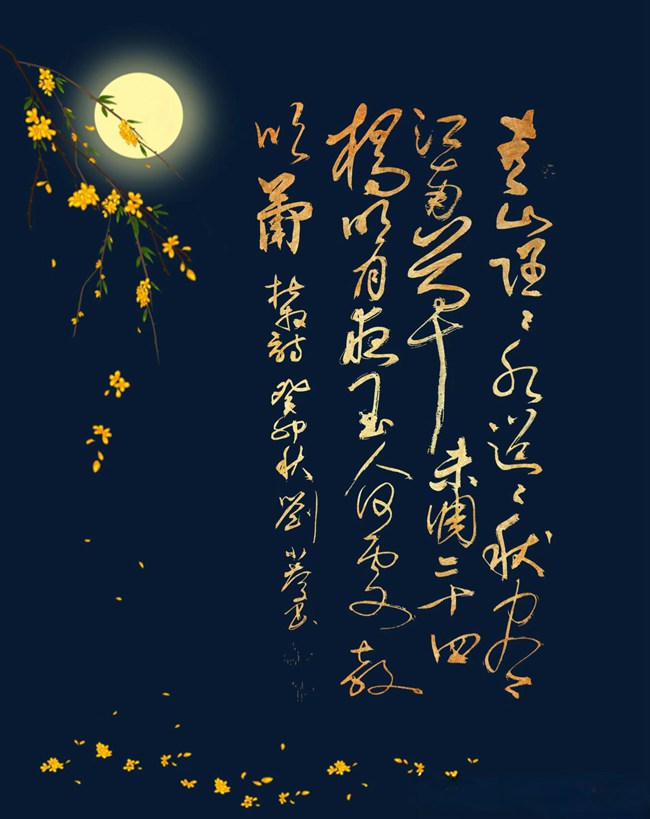 青山隐〻水迢〻秋尽
江南草未凋二十四
橋明月夜玉人何處教
吹簫 杜牧詩 癸卯秋 劉小書